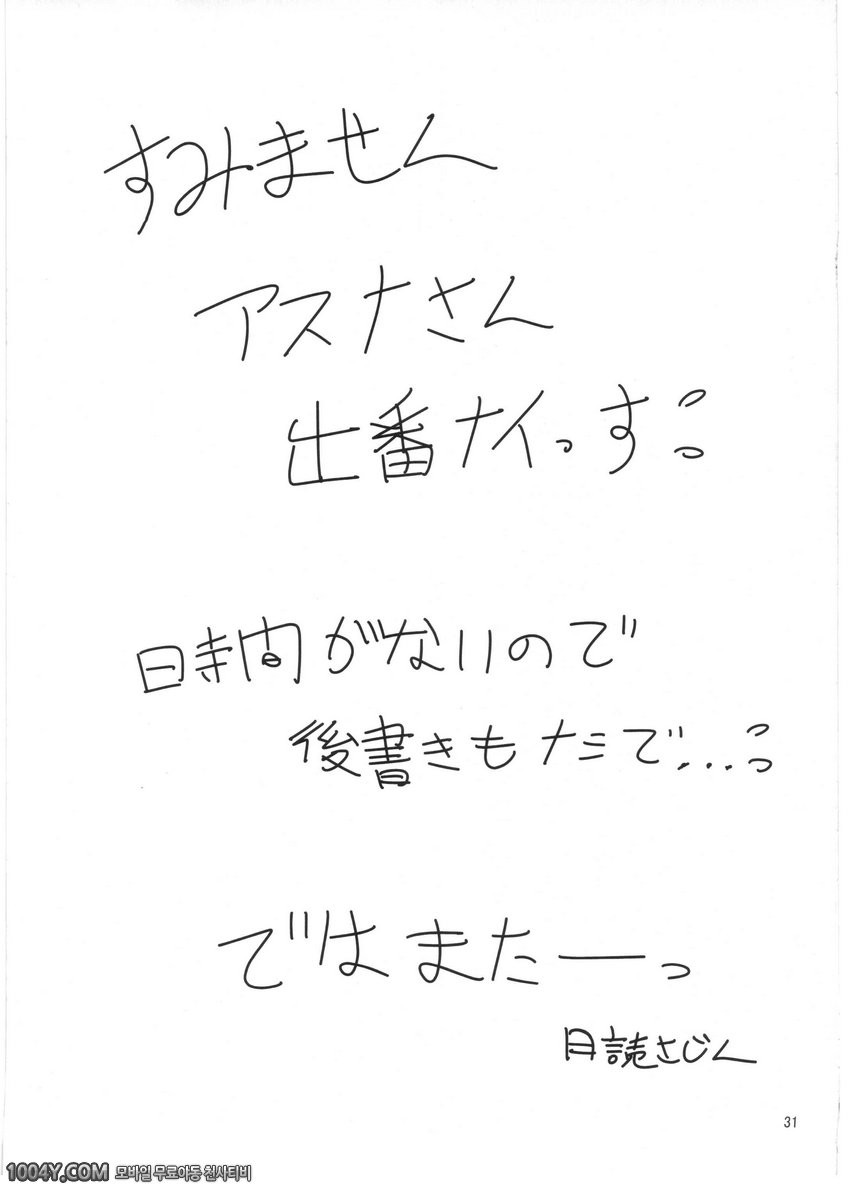 すみません
アスナさん
出番ナイっす
時間がないので
後書きもナシで...
ではまたーっ
月読さじん
31
1004Y.COM 모바일 무료야동 천사티비